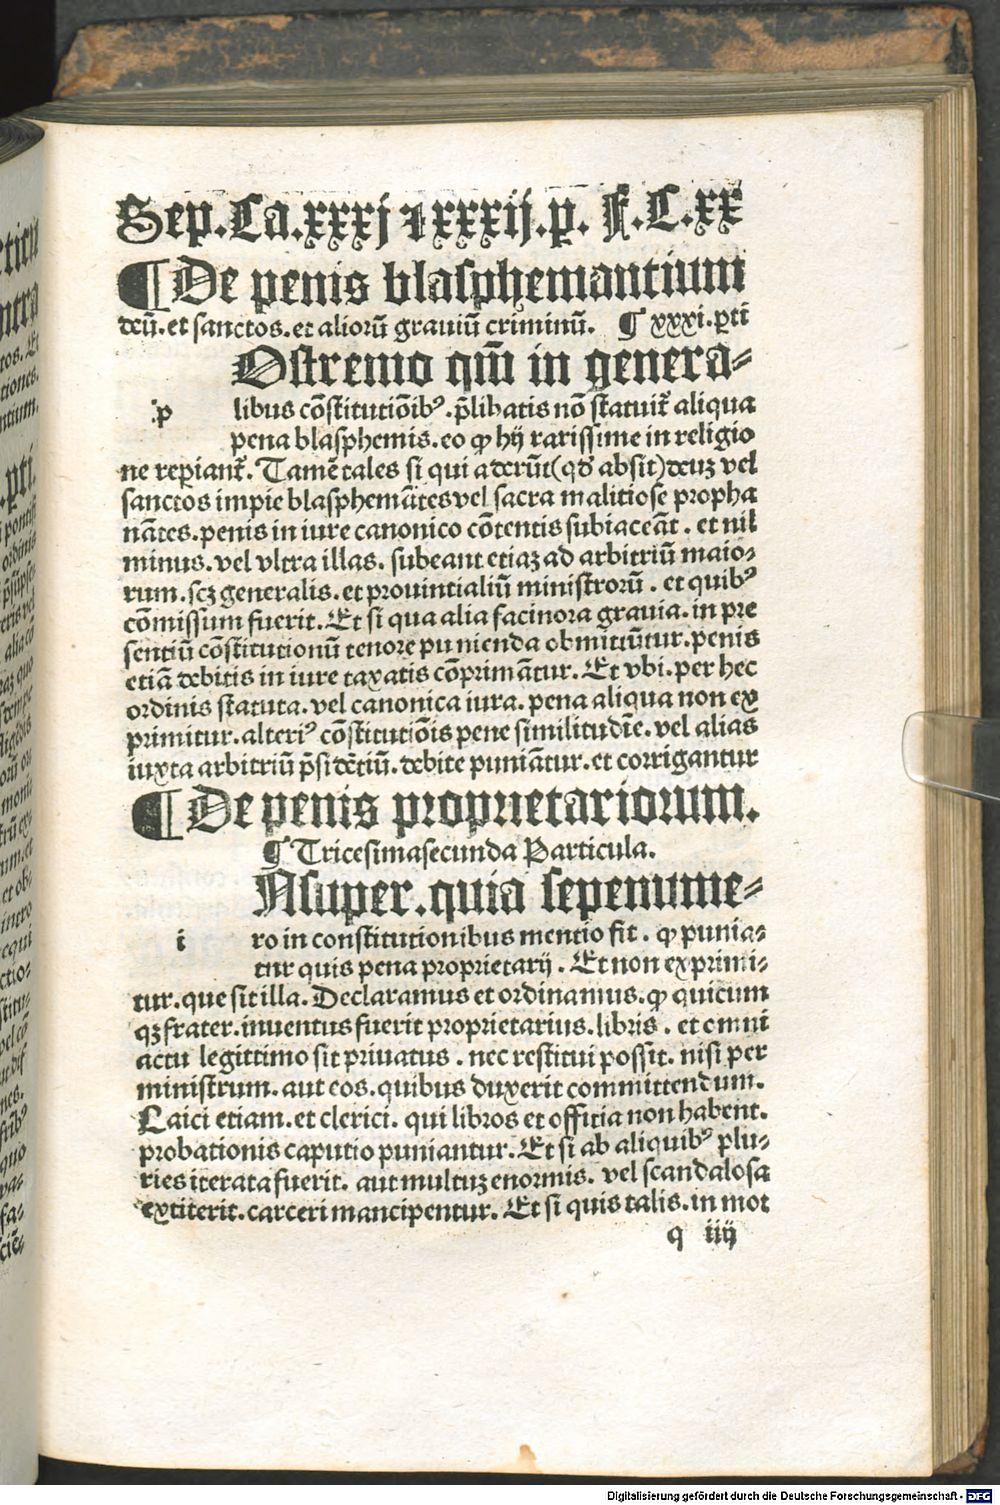 Sep.Ca.xxxj ⁊xxxij.p. F.C.xx
¶De penis blasphemantium
deū.et sanctos.et alioꝛū grauiū criminū. ¶ xxxi.ꝑti
Ostremo qm̄ in genera⸗
.p libus cōstitutiōibꝰ.p̄libatis nō statuit̄ aliqua
pena blasphemis.eo ꝙ hij rarissime in religio
ne reꝑiant̄. Tamē tales si qui aderūt(qđ absit)deuꝫ vel
sanctos impie blasphemātes vel sacra malitiose propha
nātes.penis in iure canonico cōtentis subiaceāt . et nil
minus.vel vltra illas. subeant etiaꝫ ad arbitriū maio⸗
rum.scꝫ generalis.et prouintialiū ministroꝛū . et quibꝰ
cōmissum fuerit. Et si qua alia facinora grauia.in pre
sentiū cōstitutionū tenore punienda obmittūtur.penis
etiā debitis in iure taxatis cōprimātur. Et vbi.per hec
ordinis statuta.vel canonica iura. pena aliqua non ex
primitur.alteriꝰ cōstitutiōis pene similitudīe.vel alias
iuxta arbitriū p̄sidētiū.debite puniātur.et corrigantur
¶De penis proprietariorum.
¶Tricesimasecunda Particula.
Nsuper.quia sepenume⸗
i ro in constitutionibus mentio fit . ꝙ punia⸗
tur quis pena proprietarij . Et non exprimi⸗
tur.que sit illa. Declaramus et ordinamus.ꝙ quicum
qꝫ frater.inuentus fuerit proprietarius.libris . et omni
actu legittimo sit priuatus . nec restitui possit. nisi per
ministrum.aut eos.quibus duxerit committendum.
Laici etiam.et clerici. qui libros et offitia non habent.
probationis caputio puniantur. Et si ab aliquibꝰ plu⸗
ries iterata fuerit. aut multuꝫ enormis. vel scandalosa
extiterit.carceri mancipentur. Et si quis talis.in mot
q iiij
Digitalisierung gefördert durch die Deutsche Forschungsgemeinschaft - DFG